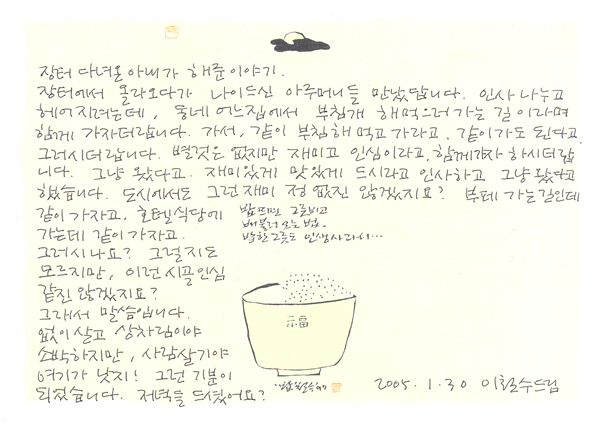 장터 다녀온 아내가 해준 이야기.
장터에서 올라오다가 나이드신 아주머니들 만났답니다. 인사 나누고
헤어지려는데, 동네 어느집에서 부침개 해먹으러 가는 길이라며
함께 가자더랍니다. 가서, 같이 부침해 먹고 가라고. 같이가도 된다고
그러시더랍니다. 별것은 없지만 재미고 인심이라고, 함께가자 하시더랍
니다. 그냥 왔다고. 재미있게 맛있게 드시라고 인사하고 그냥 왔다고
했습니다. 도시에서도 그런재미 정 없진 않겠지요? 부페 가는길인데
같이 가자고. 호텔식당에
가는데 같이 가자고.
그러시나요? 그럴지도
모르지만, 이런 시골인심
같진 않겠지요?
그래서 말씀입니다.
없이 살고 상차림이야
소박하지만, 사람살기야
여기가 낫지! 그런 기분이
되었습니다. 저녁은 드셨어요?
밥그릇 비고
배불러 오는 법.
밥 한그릇도 인생사라서...
福
2005.1.30 이철수드림